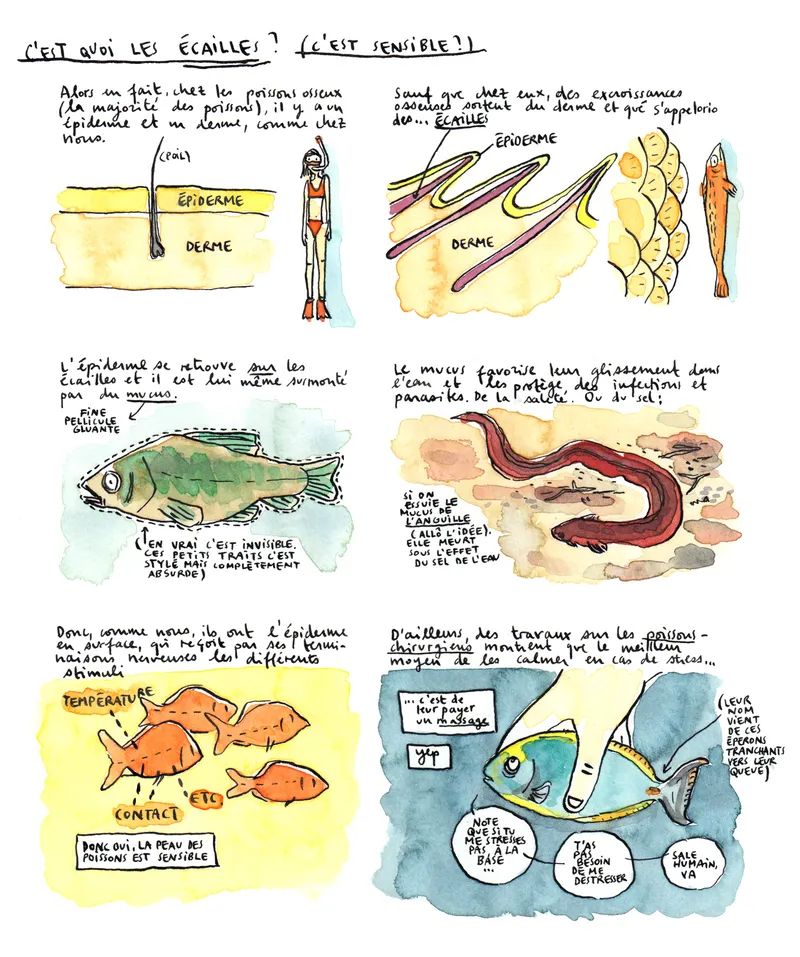 C'EST QUOI LES ÉCAILLES ? (C'EST SENSIBLE ?)
Alors en fait, chez les poissons osseux
(la majorité des poissons), il y a un
épiderme et un derme, comme chez
nous.
(POIL)
ÉPIDERME
DERME
Sauf que chez eux, des excroissances
osseuses sortent du derme et que s'appelorio
des... ÉCAILLES
ÉPIDERME
DERME
L'épiderme se retrouve sur les
écailles et il est lui même surmonté
par du mucus.
FINE
PELLICULE
GLUANTE
(EN VRAI C'EST INVISIBLE.
CES PETITS TRAITS C'EST
STYLÉ MAIS COMPLÈTEMENT
ABSURDE)
Le mucus favorise leur glissement dans
l'eau et les protège, des infections et
parasites. De la saleté. Ou du sel :
SI ON
ESSUIE LE
MUCUS DE
L'ANGUILLE
(ALLÔ L'IDÉE).
ELLE MEURT
SOUS L'EFFET
DU SEL DE L'EAU
Donc, comme nous, ils ont l'épiderme
en surface, qui reçoit par ses termi-
naisons nerveuses les différents
stimuli
TEMPÉRATURE
CONTACT
ETC
DONC OUI, LA PEAU DES
POISSONS EST SENSIBLE
D'ailleurs, des travaux sur les poissons-
chirurgiens montrent que le meilleur
moyen de les calmer en cas de stress...
... c'est de
leur payer
un massage
yep
(LEUR
NOM
VIENT
DE CES
ÉPERONS
TRANCHANTS
VERS LEUR
QUEUE)
NOTE
QUE SI TU
ME STRESSES
PAS, À LA
BASE
...
T'AS
PAS
BESOIN
DE ME
DÉSTRESSER
SALE
HUMAIN,
VA